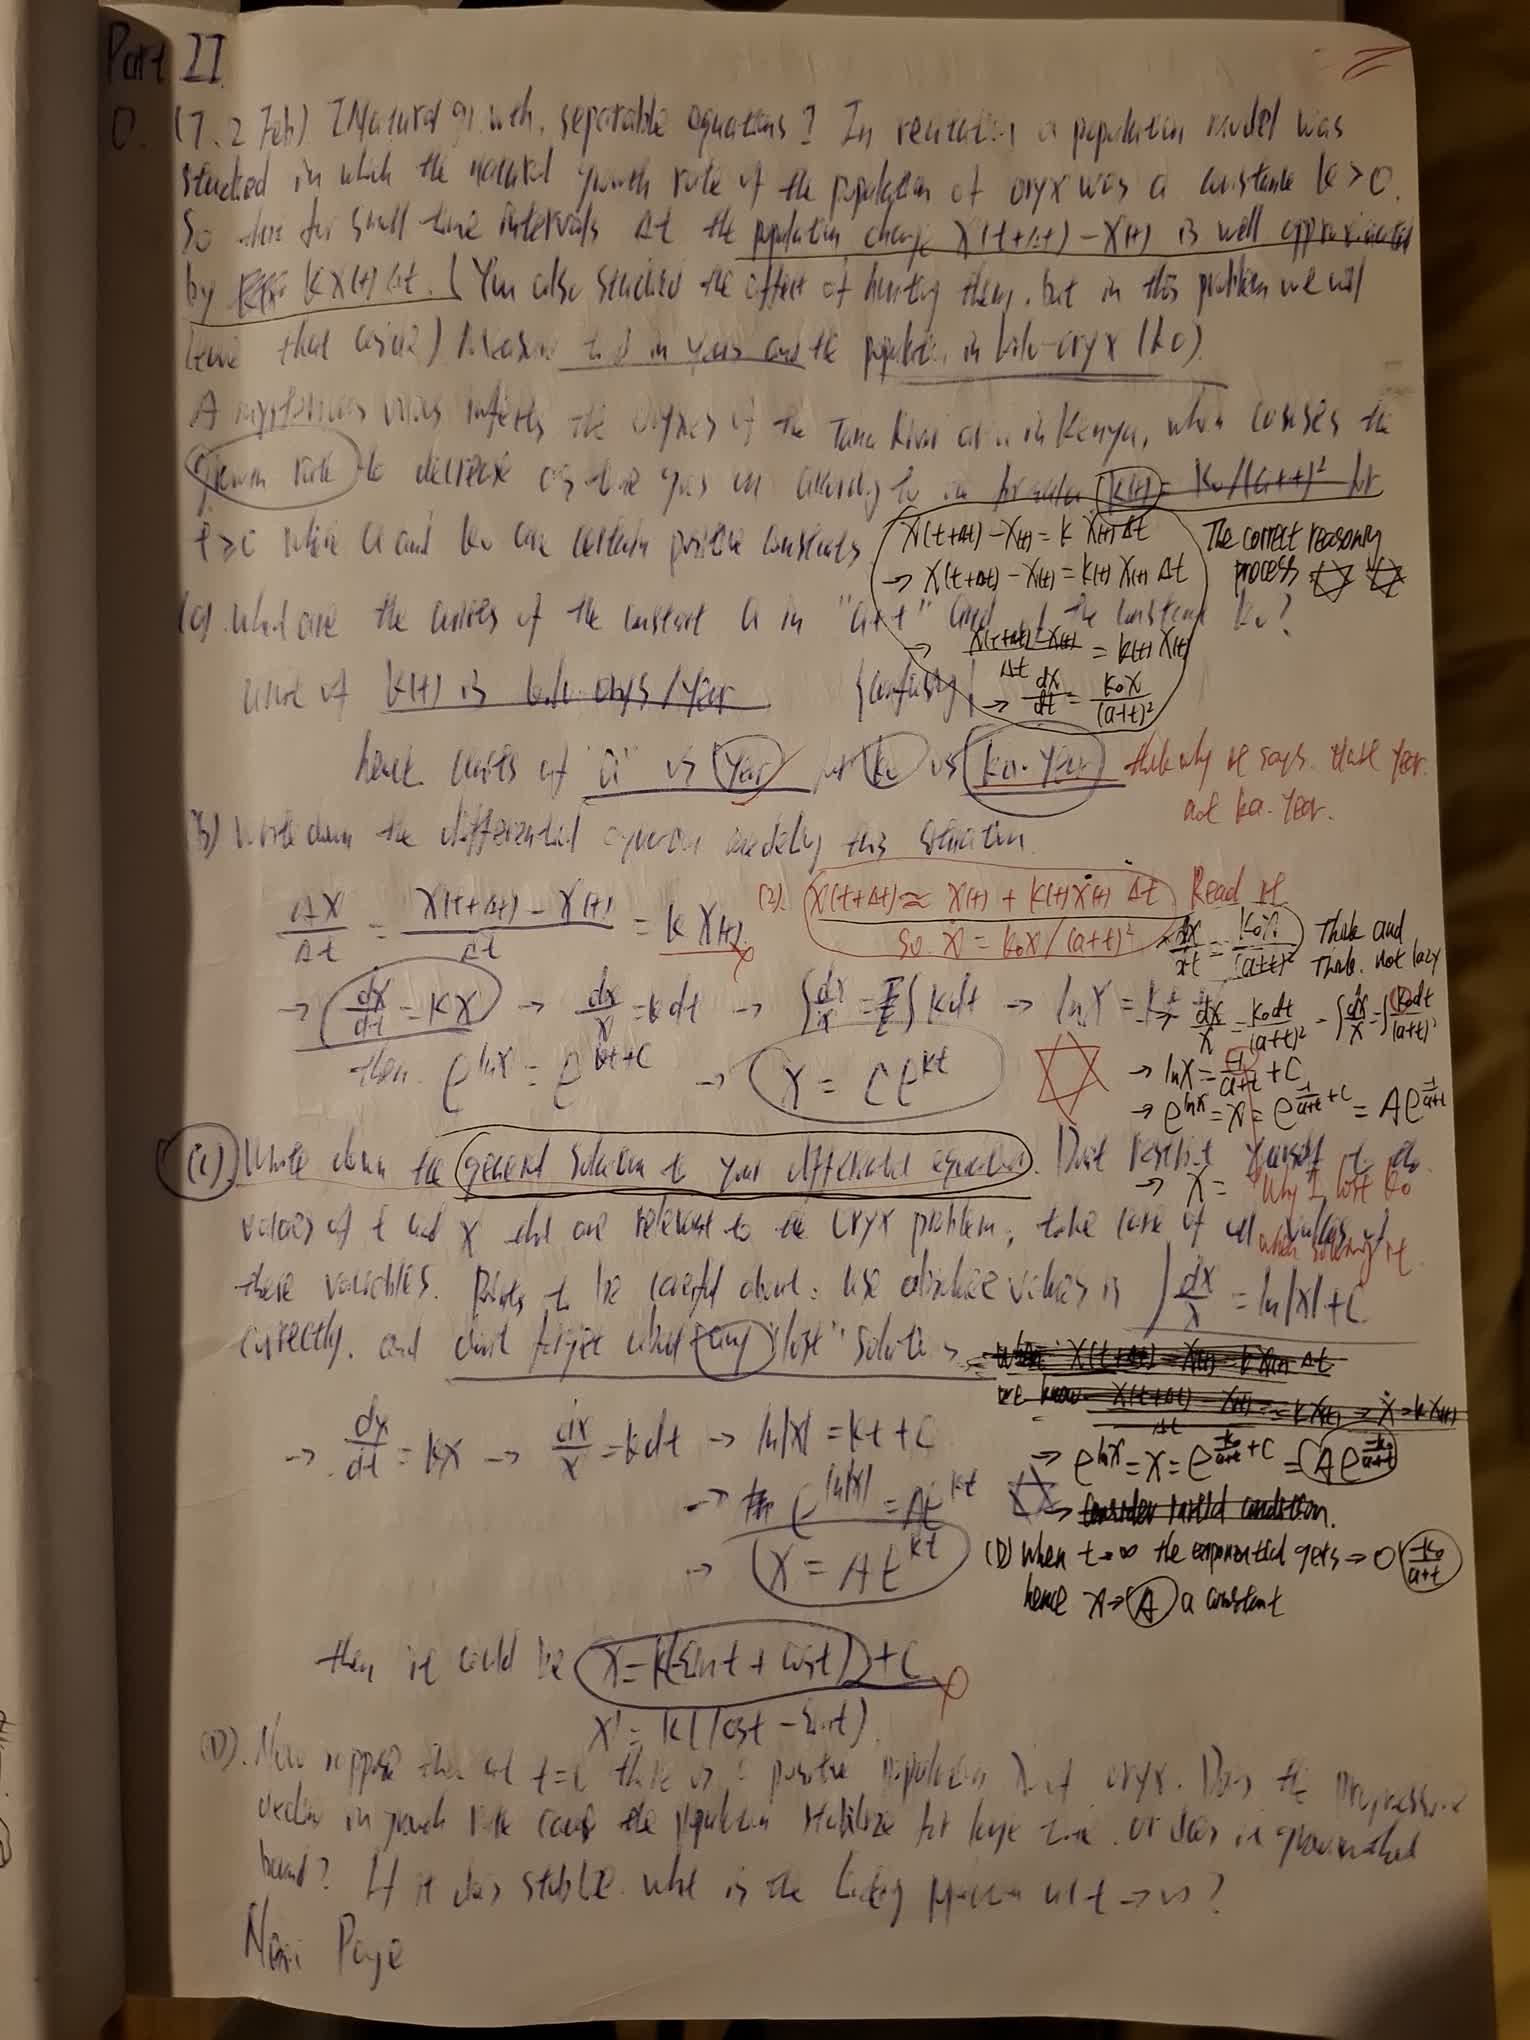 Part II
0. (T. 2 Feb) [Natural growth, separable equations] In recitation a population model was
studied in which the natural growth rate of the population of oryx was a constant k > 0.
So that for small time intervals Δt the population change X(t+Δt) - X(t) is well approximated
by kX(t)Δt. (You also studied the effect of hunting them, but in this problem we will
leave that aside) Measure time in years and the population in kilo-oryx (ko).
A mysterious virus infects the oryxes of the Tana River area in Kenya, which causes the
growth rate to decrease as time goes on according to the formula k(t) = k₀/(a+t)² for
t ≥ 0 where a and k₀ are certain positive constants
X(t+Δt) - X(t) = k X(t) Δt
→ X(t+Δt) - X(t) = k(t) X(t) Δt
→ X(t+Δt) - X(t) / Δt = k(t) X(t)
→ dx/dt = k₀X/(a+t)²
The correct reasoning
process
(a) What are the units of the constant a in "a+t" and of the constant k₀?
unit of k(t) is kilo-oryx/year
hence units of a is year for k₀ is ko·year
think why he says that year
not ko·year.
(b) Write down the differential equation modeling this situation.
ΔX/Δt = X(t+Δt) - X(t) / Δt = k X(t)
(2). X(t+Δt) ≈ X(t) + k(t)X(t) Δt
so. ẋ = k₀x/(a+t)²
Read it
dx/dt = k₀x/(a+t)² Think and
Think. not lazy
→ dx/dt = kx → dx/x = kdt → ∫dx/x = ∫kdt
→ dx/x = k₀dt/(a+t)² = ∫dx/x = ∫k₀dt/(a+t)²
then. e^lnx = e^kt+c → X = Ce^kt
→ lnx = -1/a+t + C
→ e^lnx = x = e^-1/a+t +c = Ae^-1/a+t
(c) Write down the general solution to your differential equation. Don't restrict yourself to the
→ X =
Why I lost k₀
when solving it.
values of t and x that are relevant to the oryx problem; take care of all values of
these variables. Points to be careful about: use absolute values in ∫dx/x = ln|x| + C
correctly, and don't forget about any "lost" solutions
When X(t+Δt) - X(t) = k X(t) Δt
we know X(t+Δt) - X(t) / Δt = k X(t) → ẋ = k X(t)
→ dx/dt = kx → dx/x = kdt → ln|x| = kt + C
→ e^ln|x| = At^kt
→ X = At^kt
→ e^lnx = x = e^-k₀/a+t +c = Ae^-k₀/a+t
→ consider invalid condition.
(D) When t→∞ the exponential gets → 0 (-k₀/a+t)
hence x → A a constant
then it could be X = k(sint + cost) + C
X' = k(cost - sint)
(D). Now suppose that at t=0 there is a positive population x₀ of oryx. Does the progressive
decline in growth rate cause the population stabilize for large time, or does it grow without
bound? If it does stable. what is the limiting population as t → ∞?
Next Page